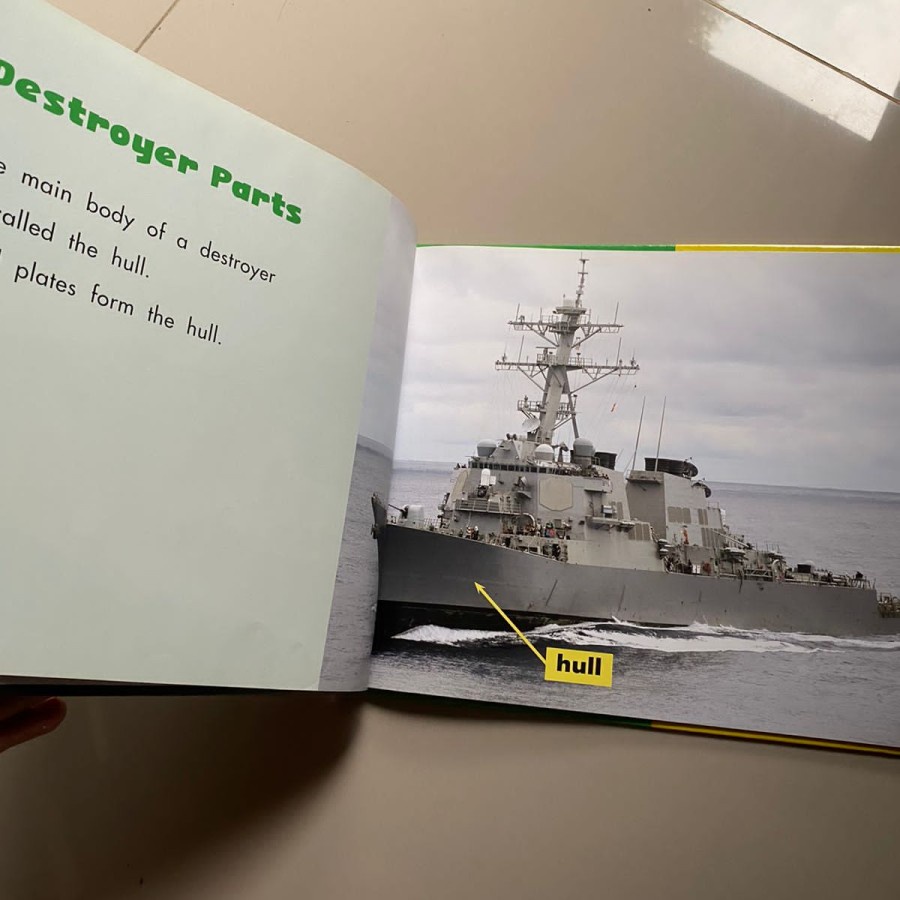 Destroyer Parts
main body of a destroyer
called the hull.
plates form the hull.
hull